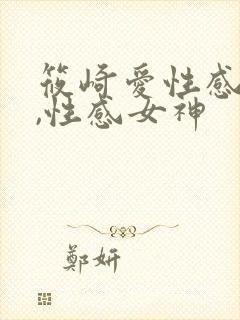 筱崎愛性感
,性感女神
鄭妍